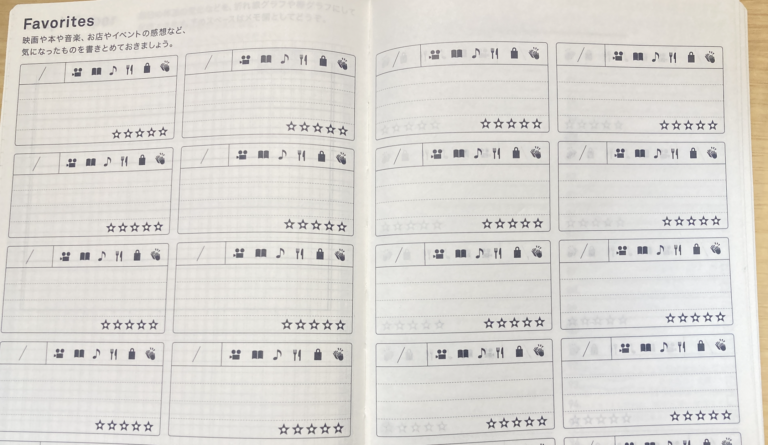 Favorites
映画や本や音楽、お店やイベントの感想など、
気になったものを書きとめておきましょう。